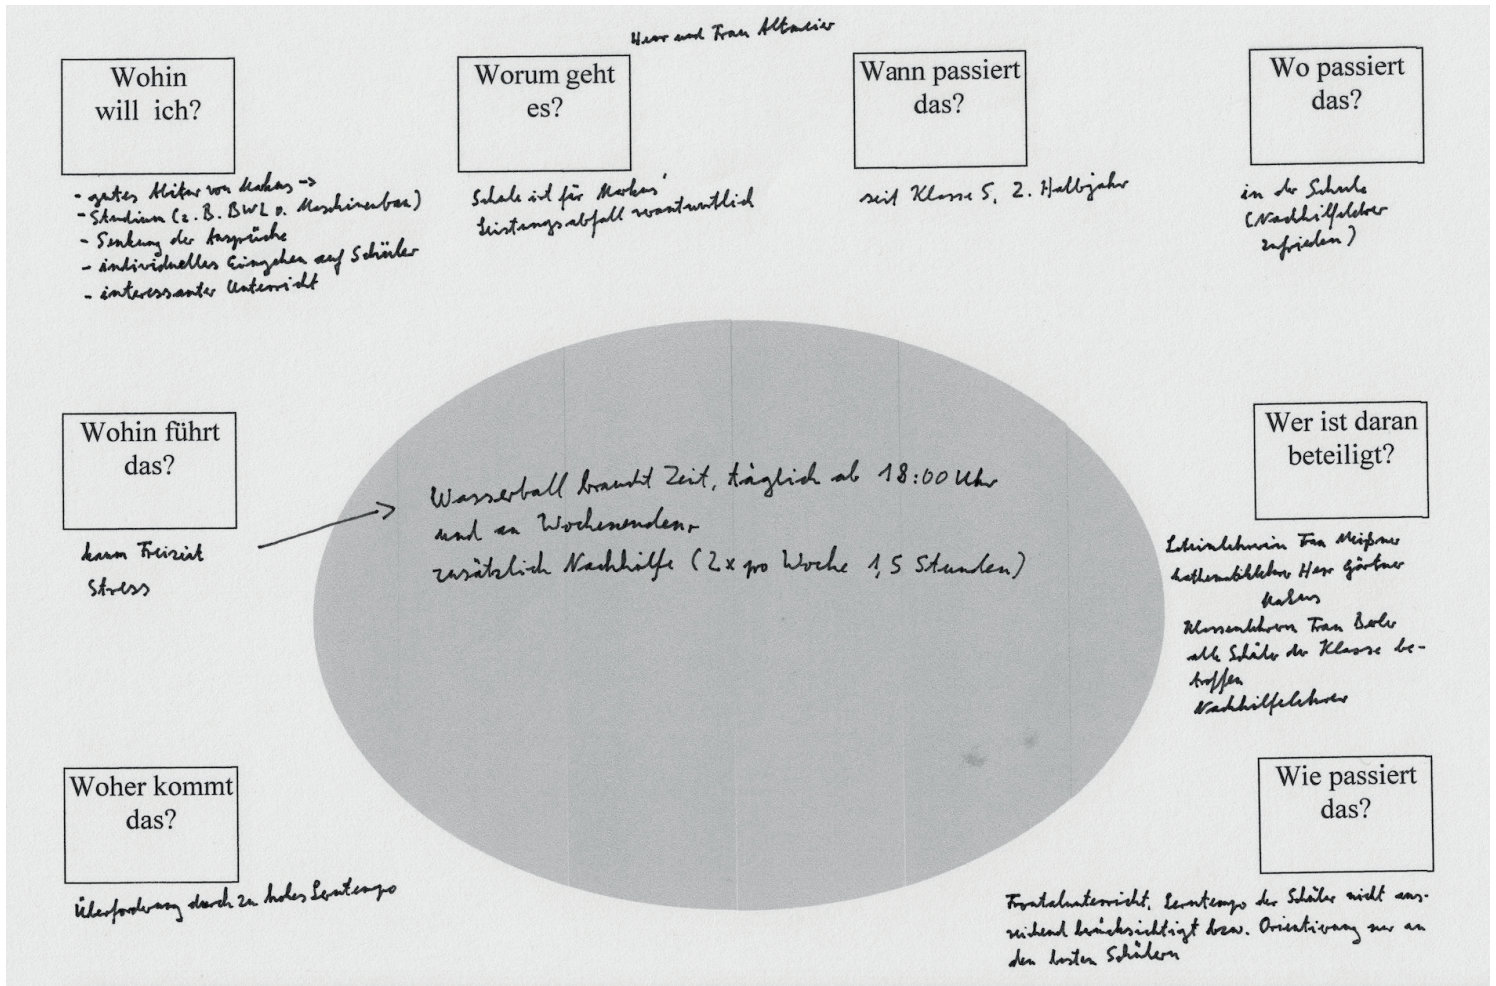 Herr und Frau Altmeier
Wohin
will ich?
- gutes Abitur von Markus ->
- Studium (z. B. BWL o. Maschinenbau)
- Senkung der Ansprüche
- individuelles Eingehen auf Schüler
- interessanter Unterricht
Worum geht
es?
Schule ist für Markus'
Leistungsabfall verantwortlich
Wann passiert
das?
seit Klasse 5, 2. Halbjahr
Wo passiert
das?
in der Schule
(Nachhilfelehrer
zufrieden)
Wohin führt
das?
kaum Freizeit
Stress
Wasserball braucht Zeit, täglich ab 18:00 Uhr
und an Wochenenden,
zusätzlich Nachhilfe (2x pro Woche 1,5 Stunden)
Wer ist daran
beteiligt?
Lateinlehrerin Frau Meißner
Mathematiklehrer Herr Gärtner
Markus
Klassenlehrerin Frau
alle Schüler der Klasse be-
troffen
Nachhilfelehrer
Woher kommt
das?
Überforderung durch zu hohes Lerntempo
Wie passiert
das?
Frontalunterricht, Lerntempo der Schüler nicht aus-
reichend berücksichtigt bzw. Orientierung nur an
den besten Schülern